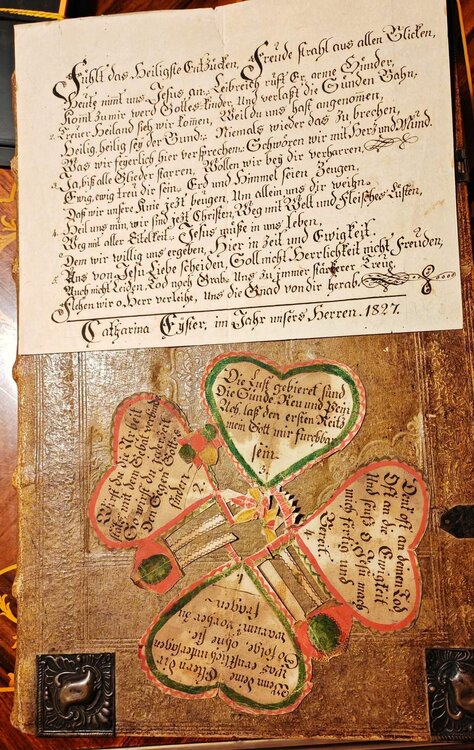 Fühlt das Heiligste Entzücken, Freude strahl aus allen Blicken,
Heute nimt uns Jesus an. Leibreich rufft Er arme Sünder,
Komt zu mir werd Gottes kinder, Und verlaßt die Sünden Bahn.
2. Treuer Heiland sieh wir kom̄en, Weil du uns hast angenom̄en,
Heilig, heilig sey der Bund. Niemals wieder das zu brechen,
Was wir feyerlich hier versprechen, Schwören wir mit Hertz und Mund.
3. Ja, biß alle Glieder starren, Wollen wir bey dir verharren,
Ewig, ewig treu dir sein. Erd und Himmel seien Zeugen,
Daß wir unsere Knie jezt beugen, Um allein uns dir weihn.
4. Heil uns nun, wir sind jezt Christen, Weg mit Welt und Fleisches Lüsten,
Weg mit aller Eitelkeit. Jesus müße in uns leben,
Dem wir willig uns ergeben, Hier in Zeit und Ewigkeit.
5. Uns von Jesu Liebe scheiden, Soll nicht Herrlichkeit nicht Freuden,
Auch nicht Leiden, Tod noch Grab. Uns zu immer stärkerer Treue,
Flehen wir o Herr verleihe, Uns die Gnad von dir herab.
Catharina Eyster, im Jahr unsers Herren. 1827.
Die Lust gebieret sünd
Die Sünde Reu und Pein
Ach laß den ersten Reitz
mein Gott mir furchbar
sein.
3.
Wirst du die Arbeit
stets mit dem Gebät verbinden
So wirst du jederzeit
Den Segen Gottes
finden
2.
Denk oft an deinen Tod
Oft an die Ewigkeit
Und seufz o Jesu mach
mich fertig und
Bereit
4.
1.
Wenn deine Eltern dir
was ernstlich untersagen
So folge, ohne sie
warum: vorher zu
fragen